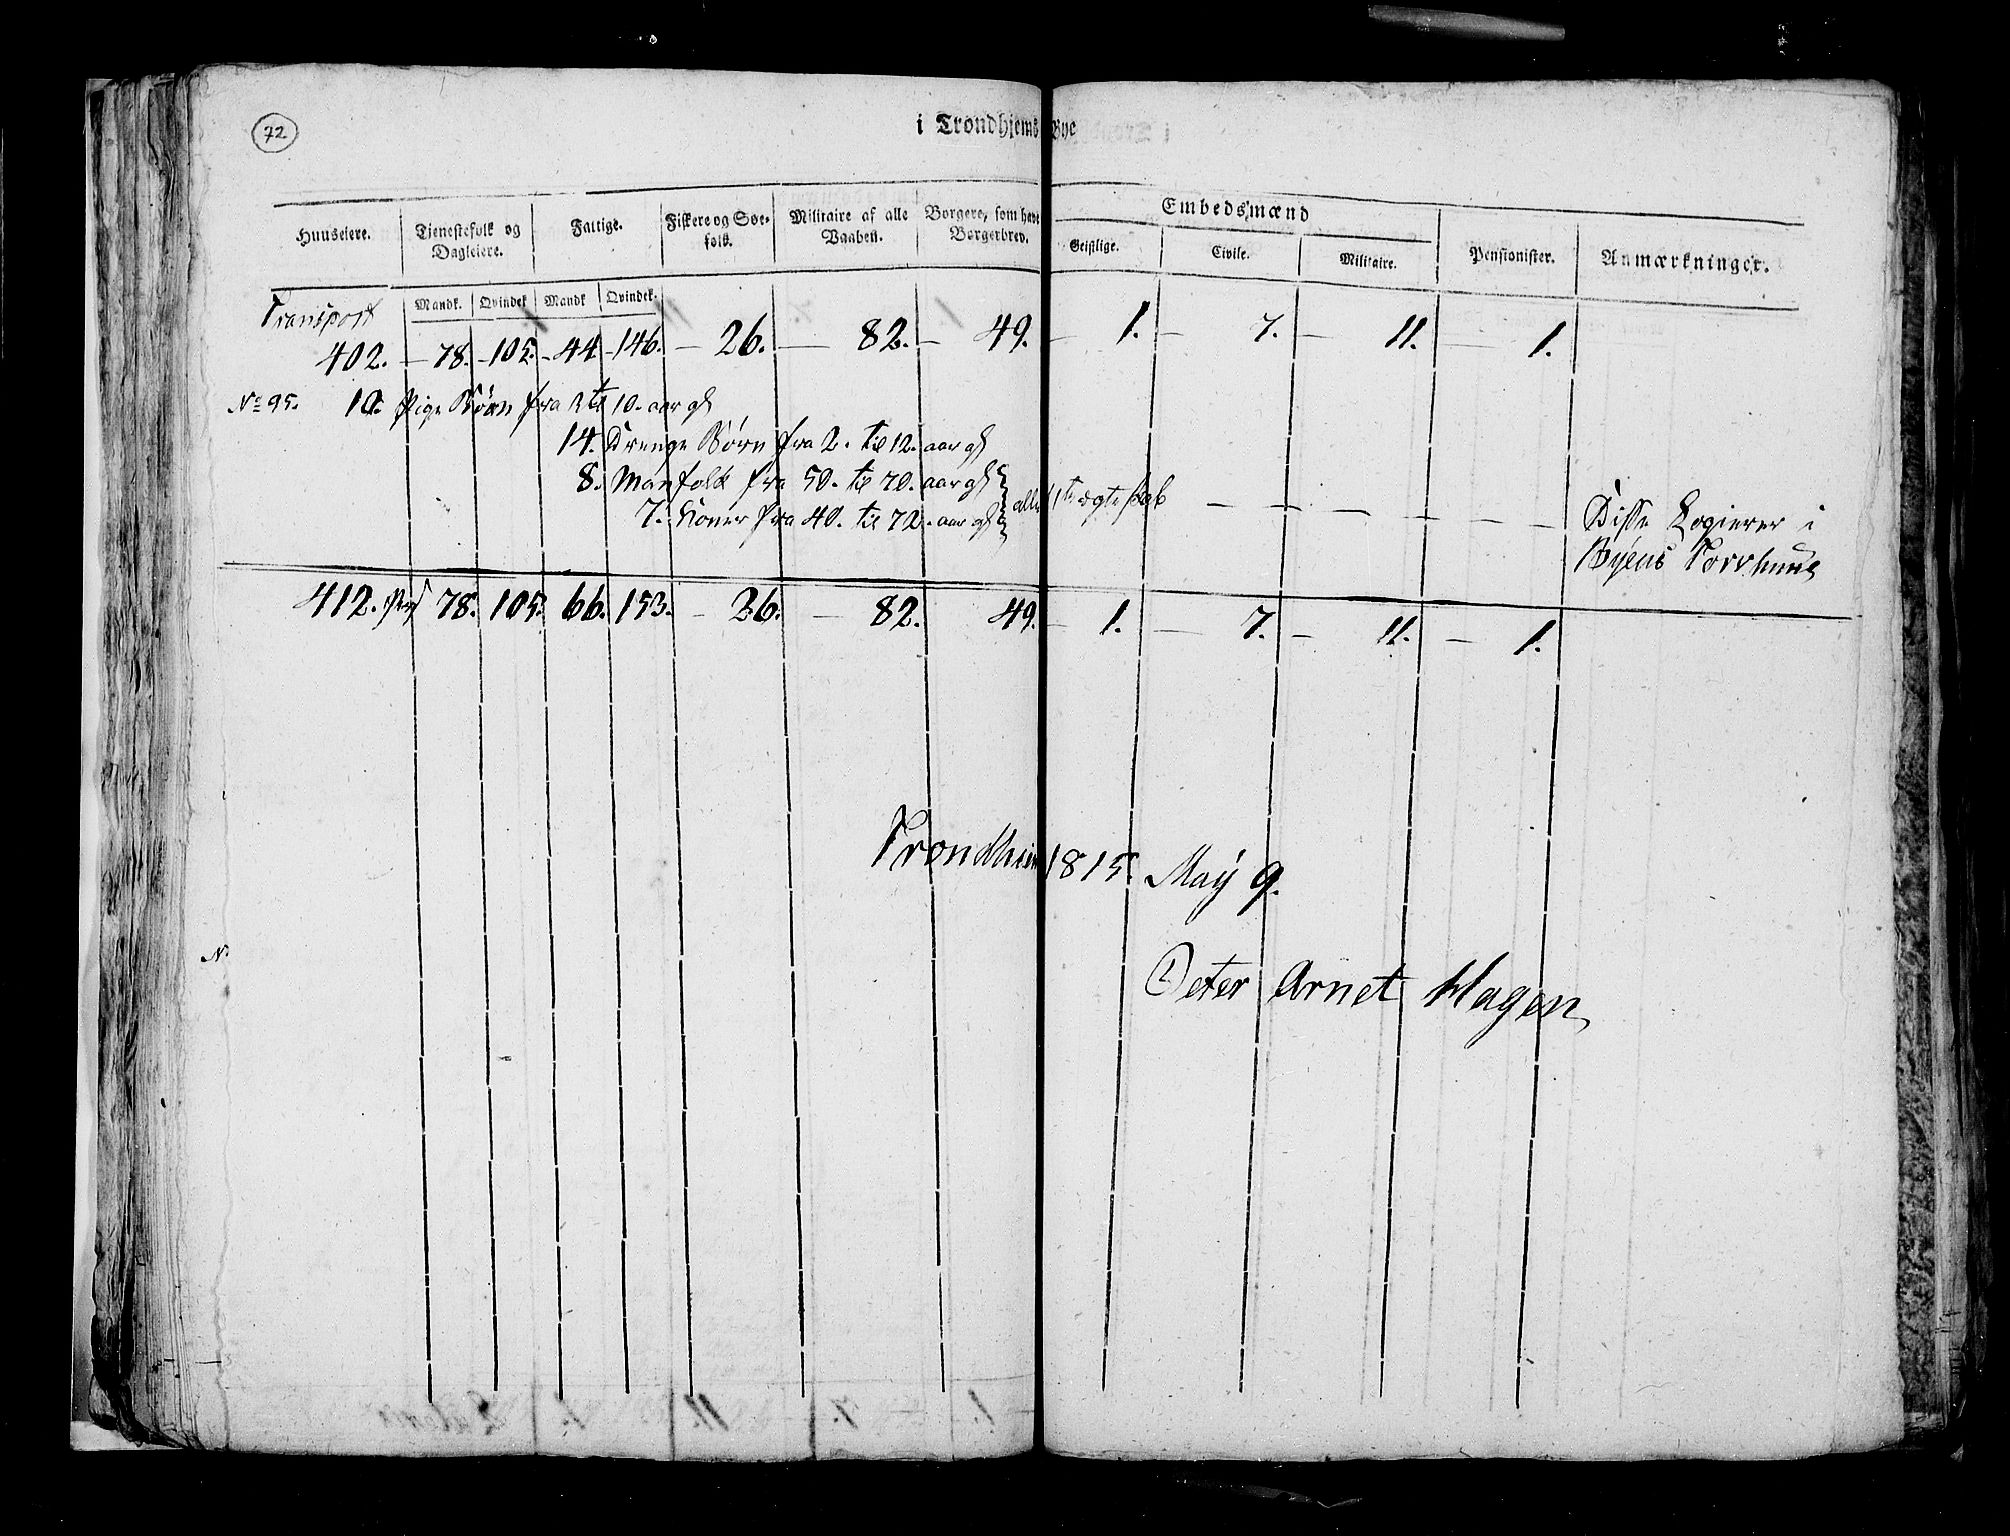 72
i Trondhjems Bye
Huuseiere. Tjenestefolk og Dagleiere. Fattige. Fiskere og Søe-folk. Militaire af alle Vaaben. Borgere, som have Borgerbrev. Embedsmænd Geistlige. Civile. Militaire. Pensionister. Anmærkninger.
Mandk. Qvindek Mandk Qvindek.
Transport
402. 78. 105. 44. 146. 26. 82. 49. 1. 7. 11. 1.
No 95. 10. Pige Børn fra til 10. aar gl
14. Drenge Børn fra 2. til 12. aar gl
8. Manfolk fra 50. til 70. aar gl
7. Koner fra 40. til 72. aar gl alle ægteskab
Disse Logierer i
Byens
412. 78. 105. 66. 153. 26. 82. 49. 1. 7. 11. 1.
Trondhiem 1815. May 9.
N
Peter Arnet Hagen